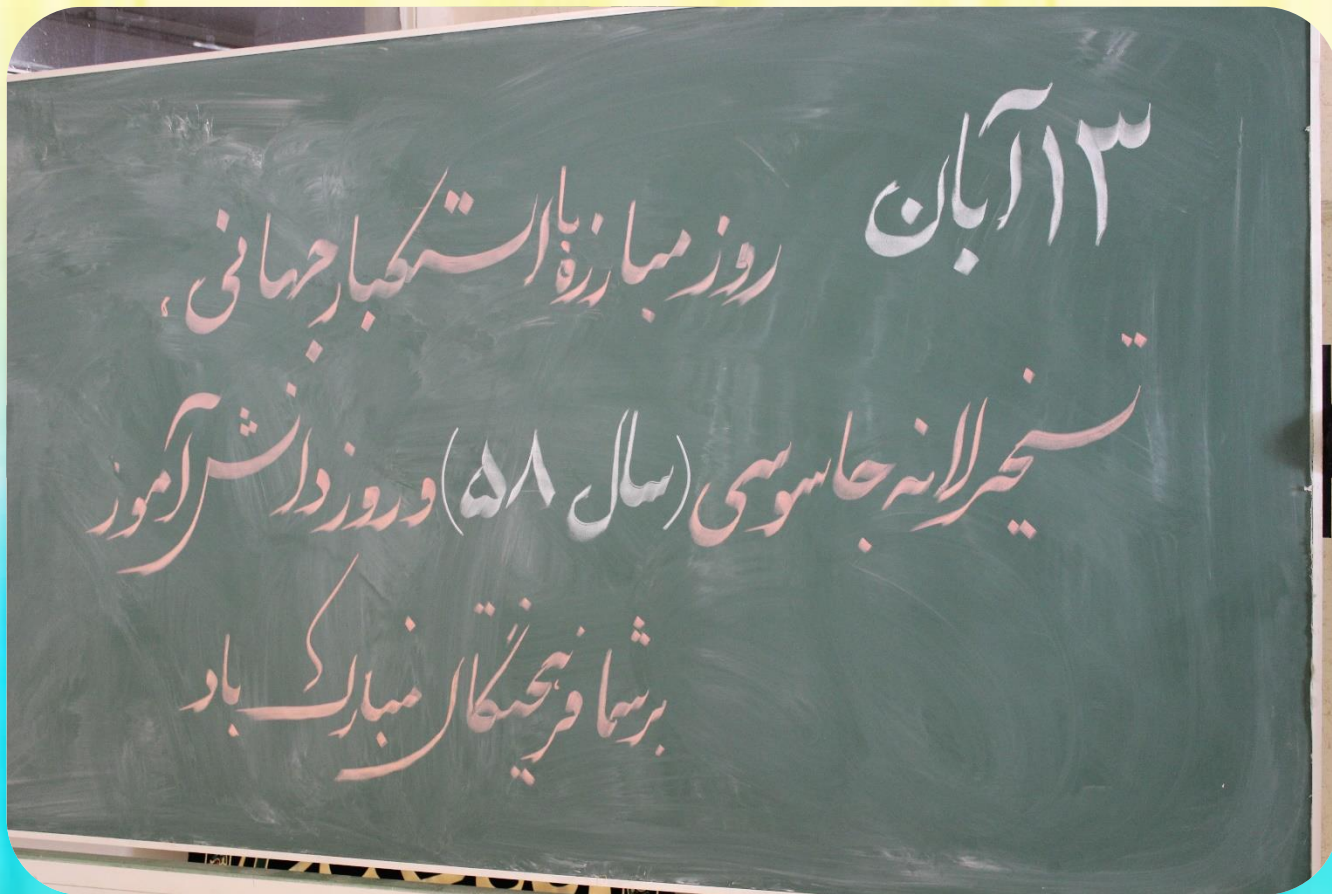 ۱۳ آبان
روز مبارزه با استکبار جهانی،
تسخیر لانه جاسوسی (سال ۵۸) و روز دانش آموز
بر شما فرهیختگان مبارک باد